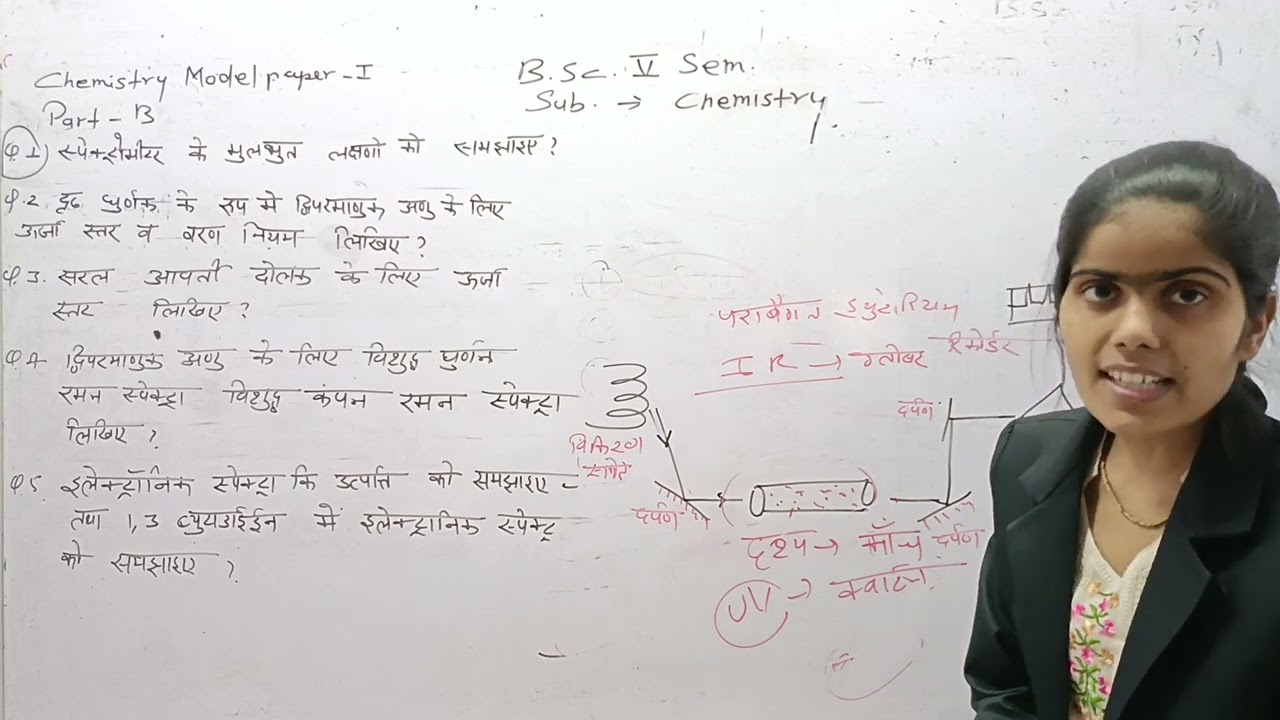 Chemistry Model paper - I
Part - B
B.Sc. V Sem.
Sub. → Chemistry
Q 1) स्पेक्ट्रोमीटर के मुलभुत लक्षणो को समझाइए ?
Q.2. दृढ घुर्णक के रूप मे द्विपरमाणुक अणु के लिए
ऊर्जा स्तर व वरण नियम लिखिए ?
Q.3. सरल आवर्ती दोलक के लिए ऊर्जा
स्तर लिखिए ?
Q.4 द्विपरमाणुक अणु के लिए विशुद्ध घुर्णन
रमन स्पेक्ट्रा विशुद्ध कंपन रमन स्पेक्ट्रा
लिखिए ?
Q.5. इलेक्ट्रॉनिक स्पेक्ट्रा कि उत्पत्ति को समझाइए -
तथा 1,3 ब्युटाडाईईन में इलेक्ट्रानिक स्पेक्ट्र
को समझाइए ?
पराबैंगन
IR → ग्लोबर
रिकॉर्डर
दर्पण
विकिरण
स्त्रोत
दर्पण
दर्पण
दृश्य → काँच
UV → क्वार्टज